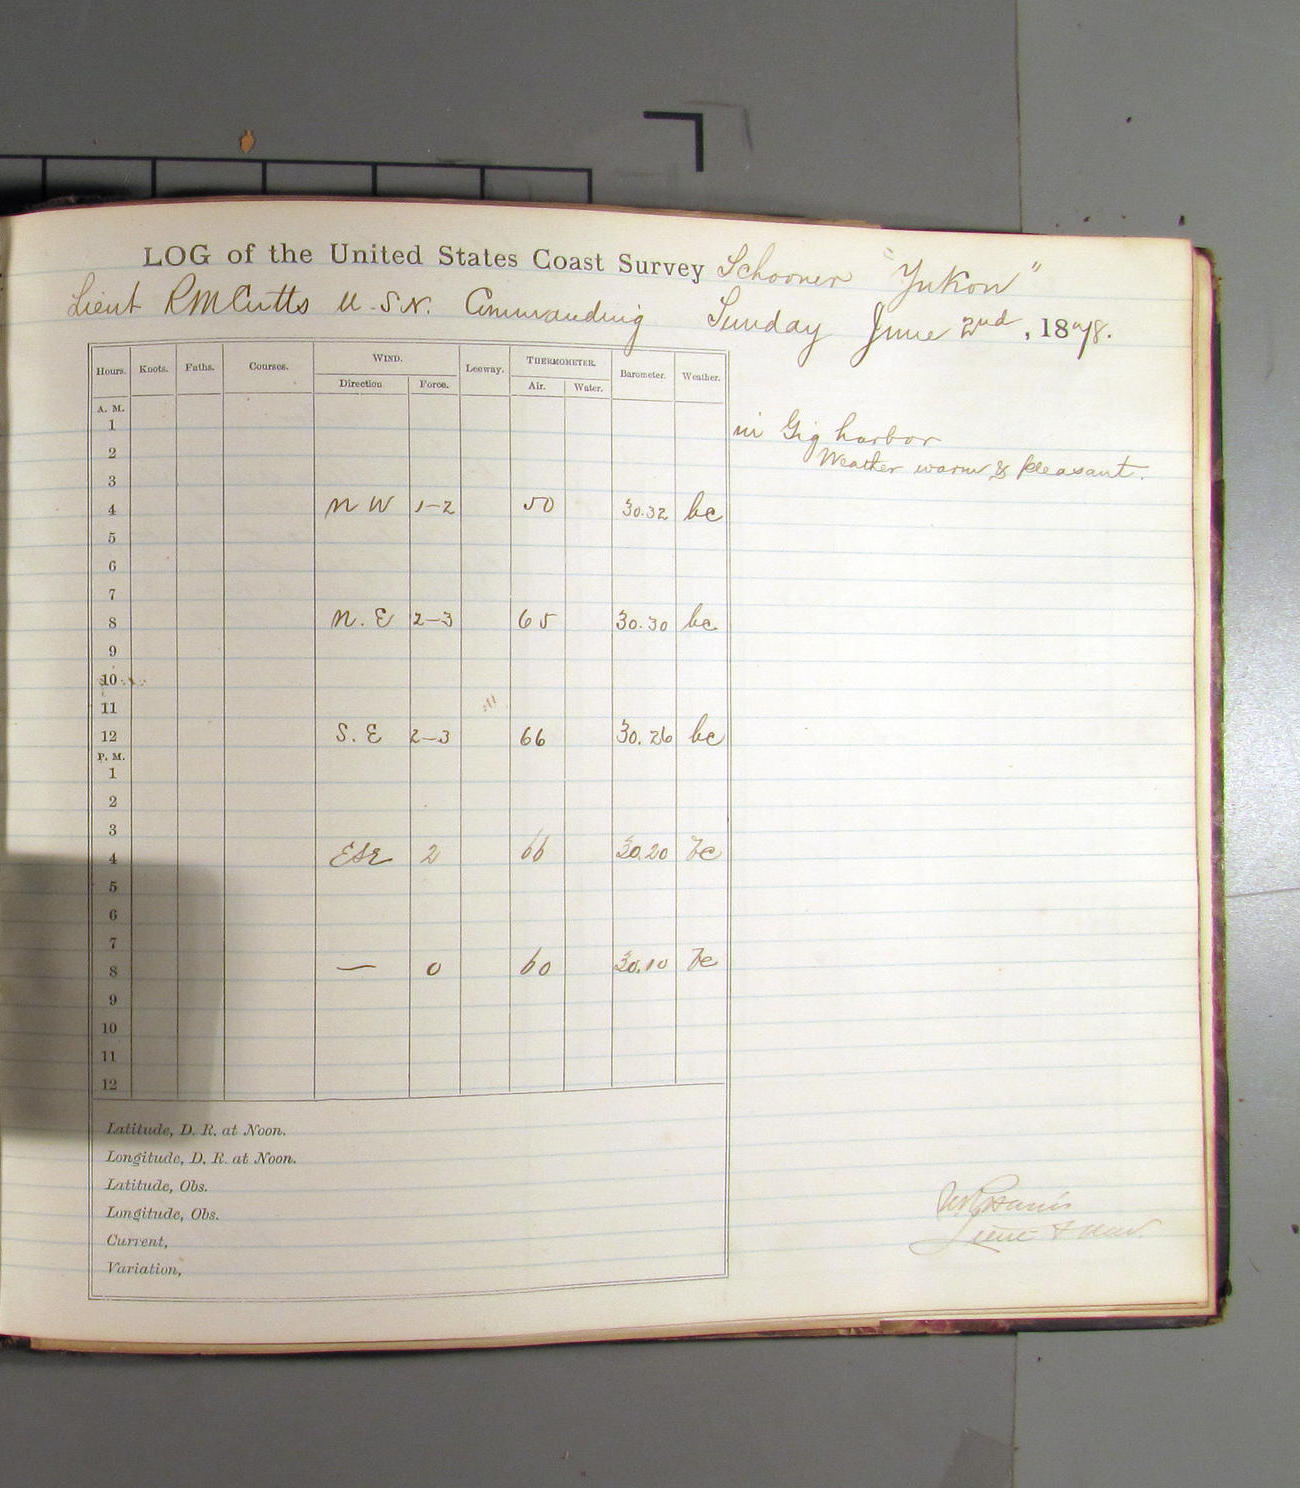 LOG of the United States Coast Survey Schooner "Yukon"
Lieut R M Cutts U.S.N. Commanding Sunday June 2nd, 1878.
Hours. Knots. Faths. Courses. WIND. Leeway. THERMOMETER. Barometer. Weather.
Direction Force. Air. Water.
A. M.
1 in Gig harbor
2 Weather warm & pleasant.
3
4 N W 1-2 50 30.32 bc
5
6
7
8 N. E 2-3 65 30.30 bc
9
10
11
12 S. E 2-3 66 30.26 bc
P. M.
1
2
3
4 ESE 2 66 30.20 bc
5
6
7
8 — 0 60 30.10 bc
9
10
11
12
Latitude, D. R. at Noon.
Longitude, D. R. at Noon.
Latitude, Obs.
Longitude, Obs.
Current,
Variation,
Lieut &